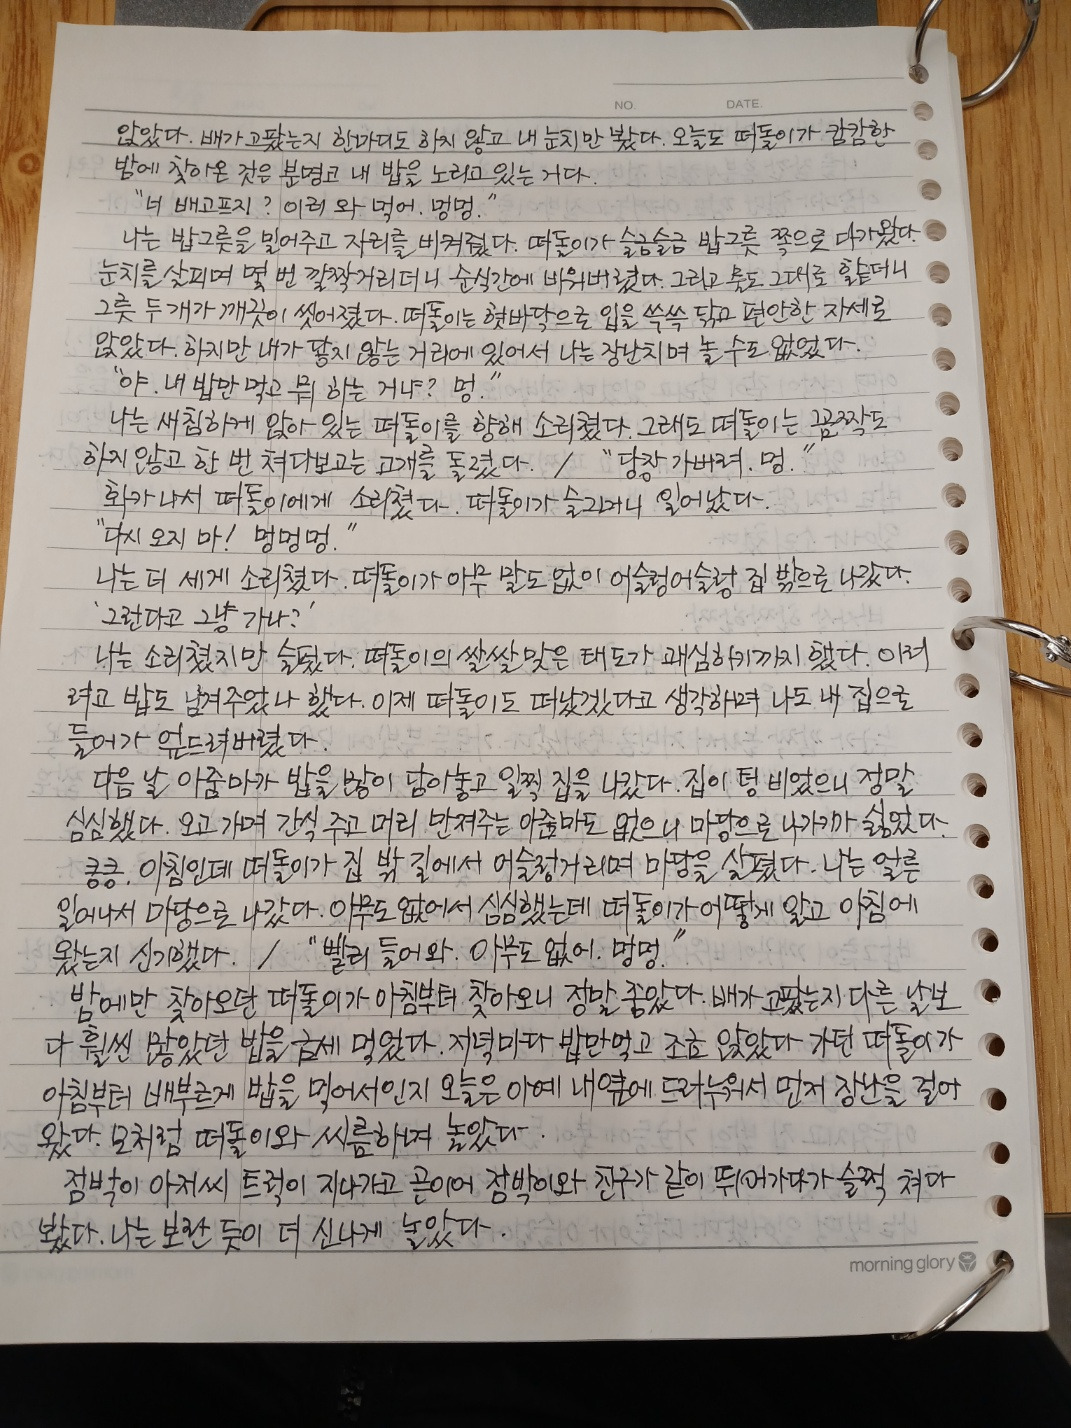 NO. DATE.
앉았다. 배가 고팠는지 한마디도 하지 않고 내 눈치만 봤다. 오늘도 떠돌이가 캄캄한
밤에 찾아온 것은 분명코 내 밥을 노리고 있는 거다.
"너 배고프지? 이리 와 먹어. 멍멍."
나는 밥그릇을 밀어주고 자리를 비켜줬다. 떠돌이가 슬금슬금 밥그릇 쪽으로 다가왔다.
눈치를 살피며 몇 번 깔짝거리더니 순식간에 비워버렸다. 그리고 물도 그대로 핥더니
그릇 두 개가 깨끗이 씻어졌다. 떠돌이는 혓바닥으로 입을 쓱쓱 닦고 편안한 자세로
앉았다. 하지만 내가 닿지 않는 거리에 있어서 나는 장난치며 놀 수도 없었다.
"야. 내 밥만 먹고 뭐 하는 거냐? 멍."
나는 새침하게 앉아 있는 떠돌이를 향해 소리쳤다. 그래도 떠돌이는 꼼짝도
하지 않고 한 번 쳐다보고는 고개를 돌렸다. / "당장 가버려. 멍."
화가 나서 떠돌이에게 소리쳤다. 떠돌이가 슬그머니 일어났다.
"다시 오지 마! 멍멍멍."
나는 더 세게 소리쳤다. 떠돌이가 아무 말도 없이 어슬렁어슬렁 집 밖으로 나갔다.
'그런다고 그냥 가나?'
나는 소리쳤지만 슬펐다. 떠돌이의 쌀쌀맞은 태도가 괘씸하기까지 했다. 이러
려고 밥도 남겨주었나 했다. 이제 떠돌이도 떠났겠다고 생각하며 나도 내 집으로
들어가 엎드려버렸다.
다음 날 아줌마가 밥을 많이 담아놓고 일찍 집을 나갔다. 집이 텅 비었으니 정말
심심했다. 오고 가며 간식 주고 머리 만져주는 아줌마도 없으니 마당으로 나가기가 싫었다.
킁킁. 아침인데 떠돌이가 집 밖 길에서 어슬렁거리며 마당을 살폈다. 나는 얼른
일어나서 마당으로 나갔다. 아무도 없어서 심심했는데 떠돌이가 어떻게 알고 아침에
왔는지 신기했다. / "빨리 들어와. 아무도 없어. 멍멍."
밤에만 찾아오던 떠돌이가 아침부터 찾아오니 정말 좋았다. 배가 고팠는지 다른 날보
다 훨씬 많았던 밥을 금세 먹었다. 저녁마다 밥만 먹고 조금 앉았다 가던 떠돌이가
아침부터 배부르게 밥을 먹어서인지 오늘은 아예 내 옆에 드러누워서 먼저 장난을 걸어
왔다. 모처럼 떠돌이와 씨름하며 놀았다.
점박이 아저씨 트럭이 지나가고 곧이어 점박이와 친구가 같이 뛰어가다가 슬쩍 쳐다
봤다. 나는 보란 듯이 더 신나게 놀았다.
morning glory